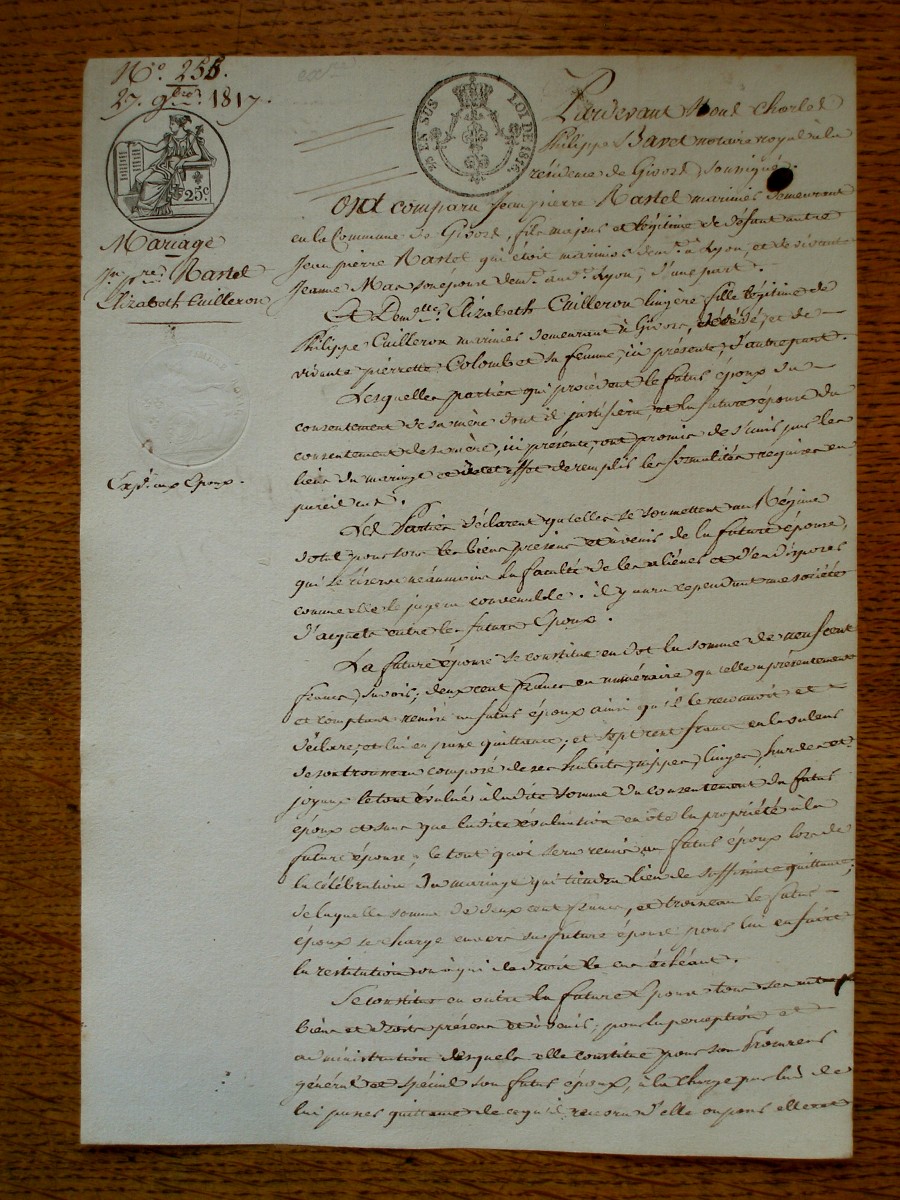 N.º 255.
27. 9bre. 1817.
25 EN SUS LOI DE 1816.
25c.
Pardevant Charles
Philippe notaire royal à la
résidence de Givors soussigné.
Mariage
Jn. pre. Rastel
Elizabeth Cuilleron
Expd. aux Epoux.
Ont comparu Jean pierre Rastel marinier demeurant
en la Commune de Givors, fils majeur et légitime de défunt autre
Jean pierre Rastel qui étoit marinier demt. à Lyon, et de vivante
Jeanne Mas son épouse demt. aud. Lyon, d'une part.
Et Demlle. Elizabeth Cuilleron lingère fille légitime de
Philippe Cuilleron marinier demeurant à Givors, décédé, et de
vivante pierrette Colombet sa femme, ici présente, d'autre part.
Lesquelles parties qui procèdent le futur époux du
consentement de sa mère dont il justifiera, et la future épouse du
consentement de sa mère, ici présente, ont promis de s'unir par les
liens du mariage et à cet effet de remplir les formalités requises en
pareil cas.
Les Parties déclarent qu'elles se soumettent au Régime
dotal pour tous les biens présens et avenir de la future épouse,
qui se réserve néanmoins la faculté de les aliéner et d'en disposer
comme elle le jugera convenable. il y aura cependant une société
d'acquets entre les futurs Epoux.
La future épouse se constitue en dot la somme de neuf cent
francs, savoir; deux cent francs en numéraire qu'elle a présentement
et comptant remise au futur époux ainsi qu'il le reconnoit et
déclare, et lui en passe quittance; et sept cent francs en la valeur
de son trousseau composé de ses habits, nippes, linges, hardes et
joyaux le tout évalué à ladite somme du consentement du futur
époux et sans que ladite évaluation en ôte la propriété à la
future épouse, le tout quoi sera remis au futur époux lors de
la célébration du mariage qui tiendra lieu de suffisante quittance;
de laquelle somme de deux cent francs, et trousseau le futur
époux se charge envers sa future épouse pour lui en faire
la restitution ou à qui de droit le cas échéant.
Se constitue en outre la future Epouse tous ses autres
biens et droits présens et à venir; pour la perception et
administration desquels elle constitue pour son Procureur
général et spécial son futur époux, à la charge par lui de
lui passer quittance de ce qu'il recevra d'elle ou pour elle et